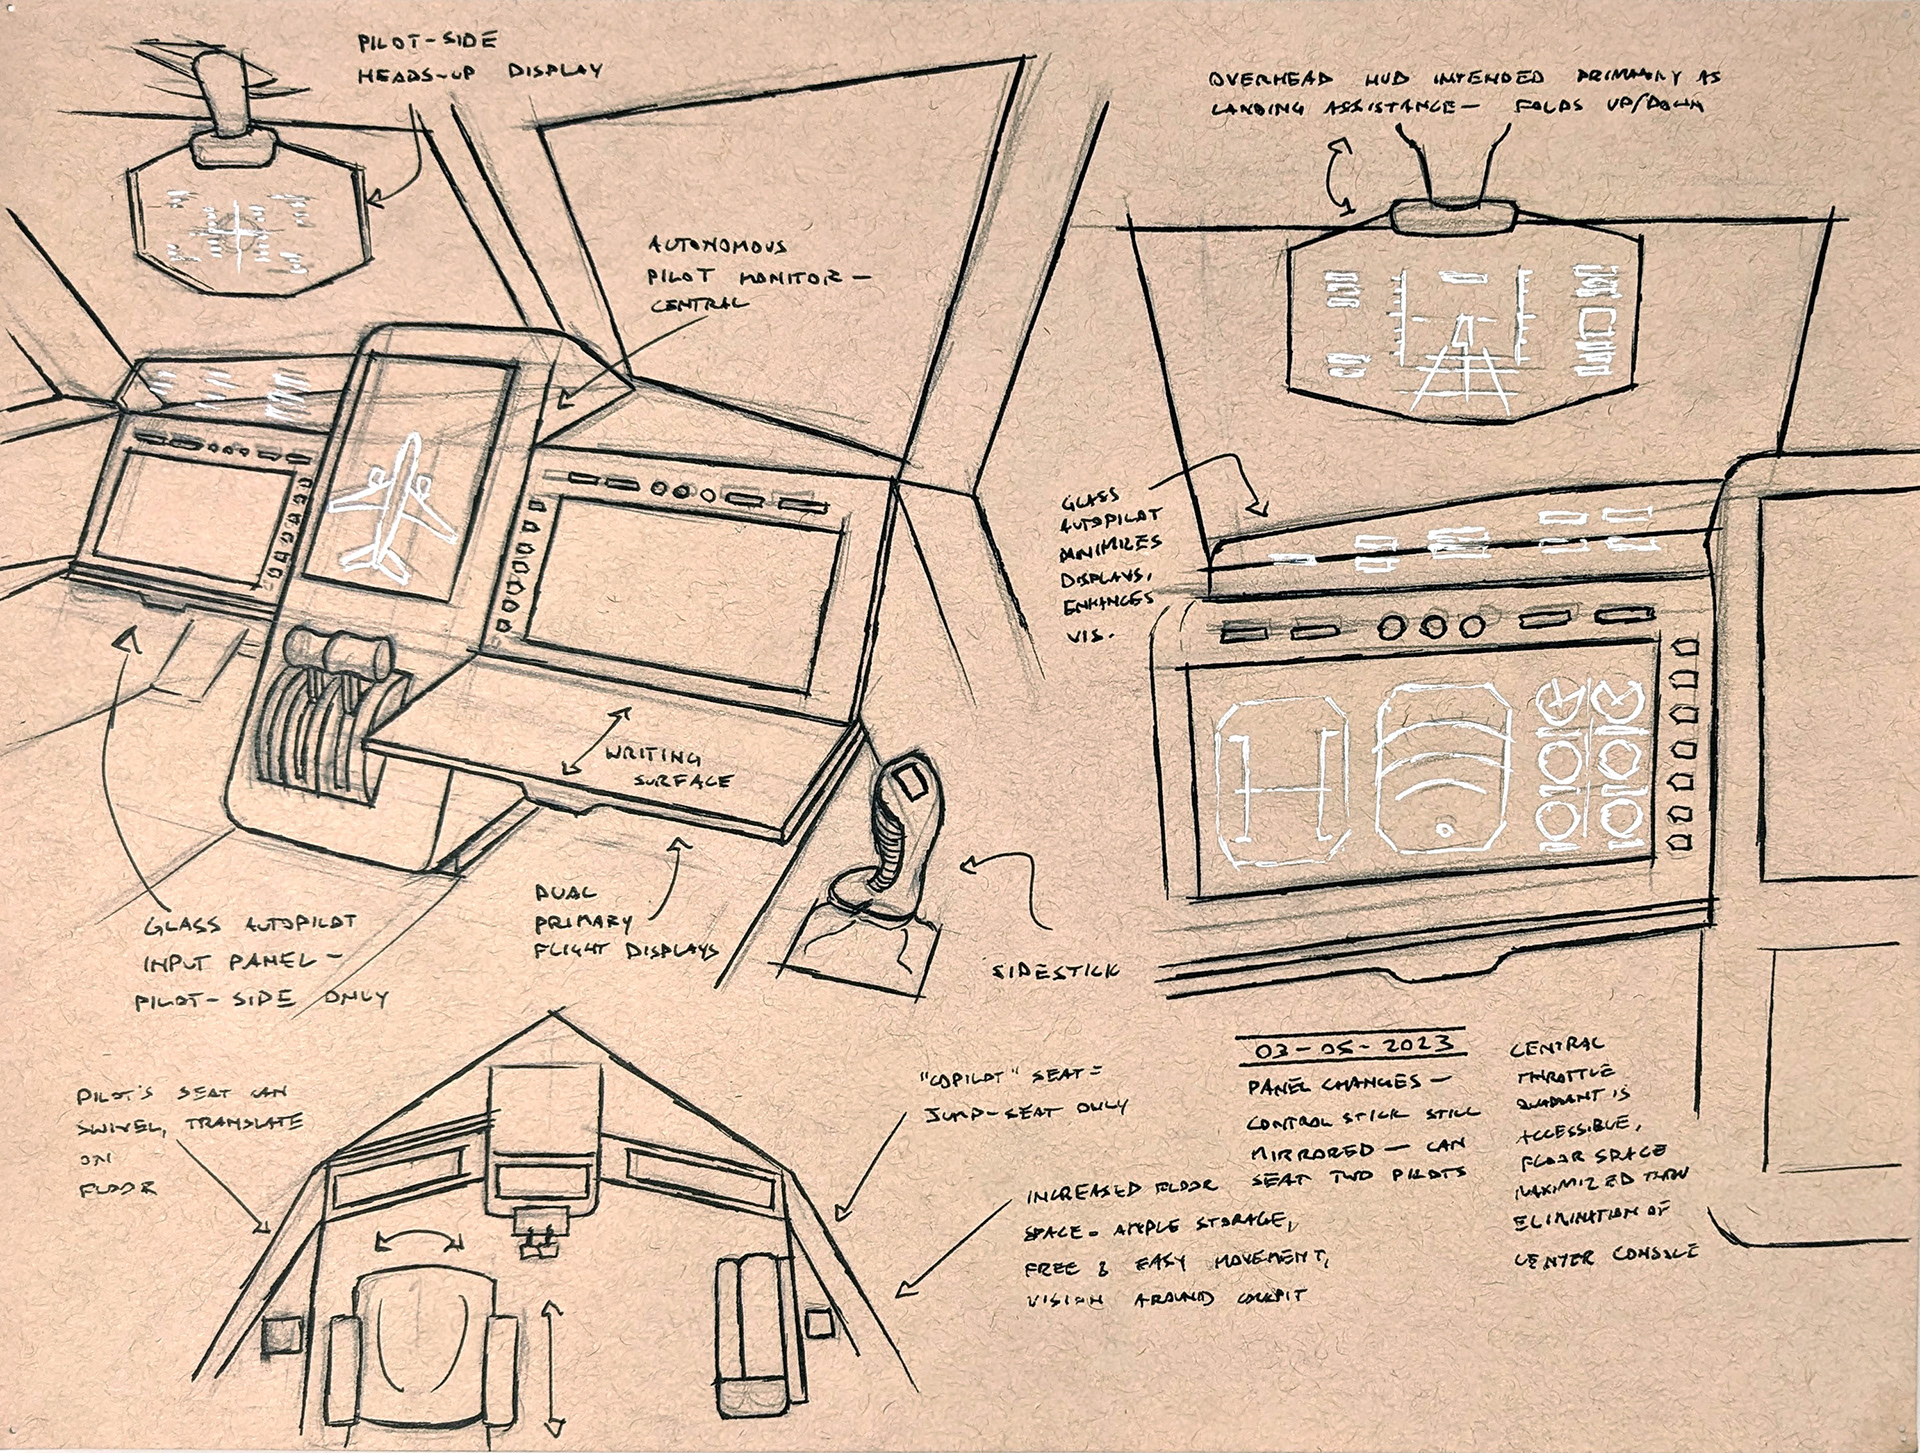 PILOT-SIDE
HEADS-UP DISPLAY
OVERHEAD HUD INTENDED PRIMARILY AS
LANDING ASSISTANCE— FOLDS UP/DOWN
AUTONOMOUS
PILOT MONITOR—
CENTRAL
GLASS
AUTOPILOT
MINIMIZES
DISPLAYS,
ENHANCES
VIS.
WRITING
SURFACE
DUAL
PRIMARY
FLIGHT DISPLAYS
GLASS AUTOPILOT
INPUT PANEL—
PILOT-SIDE ONLY
SIDESTICK
PILOT'S SEAT CAN
SWIVEL, TRANSLATE
ON
FLOOR
"COPILOT" SEAT=
JUMP-SEAT ONLY
INCREASED FLOOR
SPACE— AMPLE STORAGE,
FREE & EASY MOVEMENT,
VISION AROUND COCKPIT
03-05-2023
PANEL CHANGES—
CONTROL STICK STILL
MIRRORED— CAN
SEAT TWO PILOTS
CENTRAL
THROTTLE
QUADRANT IS
ACCESSIBLE,
FLOOR SPACE
MAXIMIZED THRU
ELIMINATION OF
CENTER CONSOLE